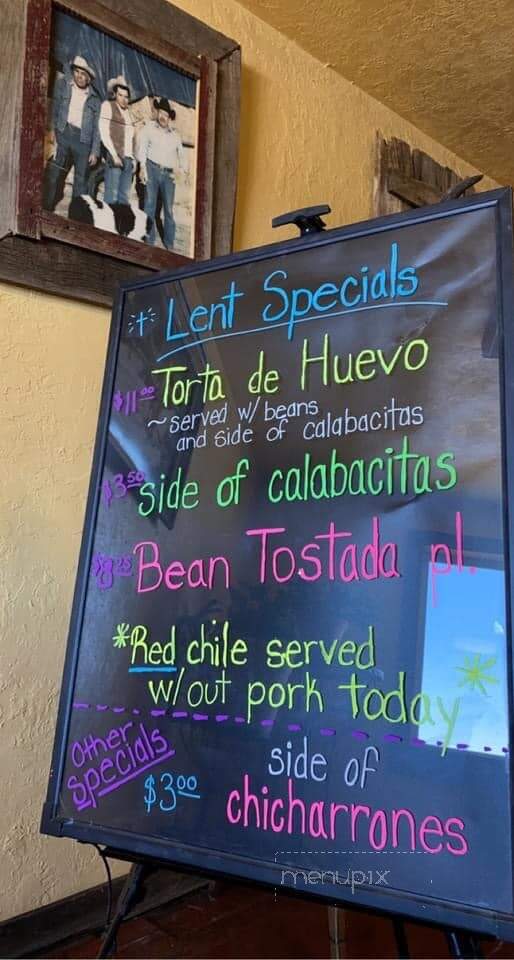 Lent Specials
$11.00 Torta de Huevo
~served w/ beans
and side of calabacitas
$3.50 side of calabacitas
$8.25 Bean Tostada pl.
*Red chile served
w/out pork today*
Other Specials
$3.00 side of
chicharrones
menupix